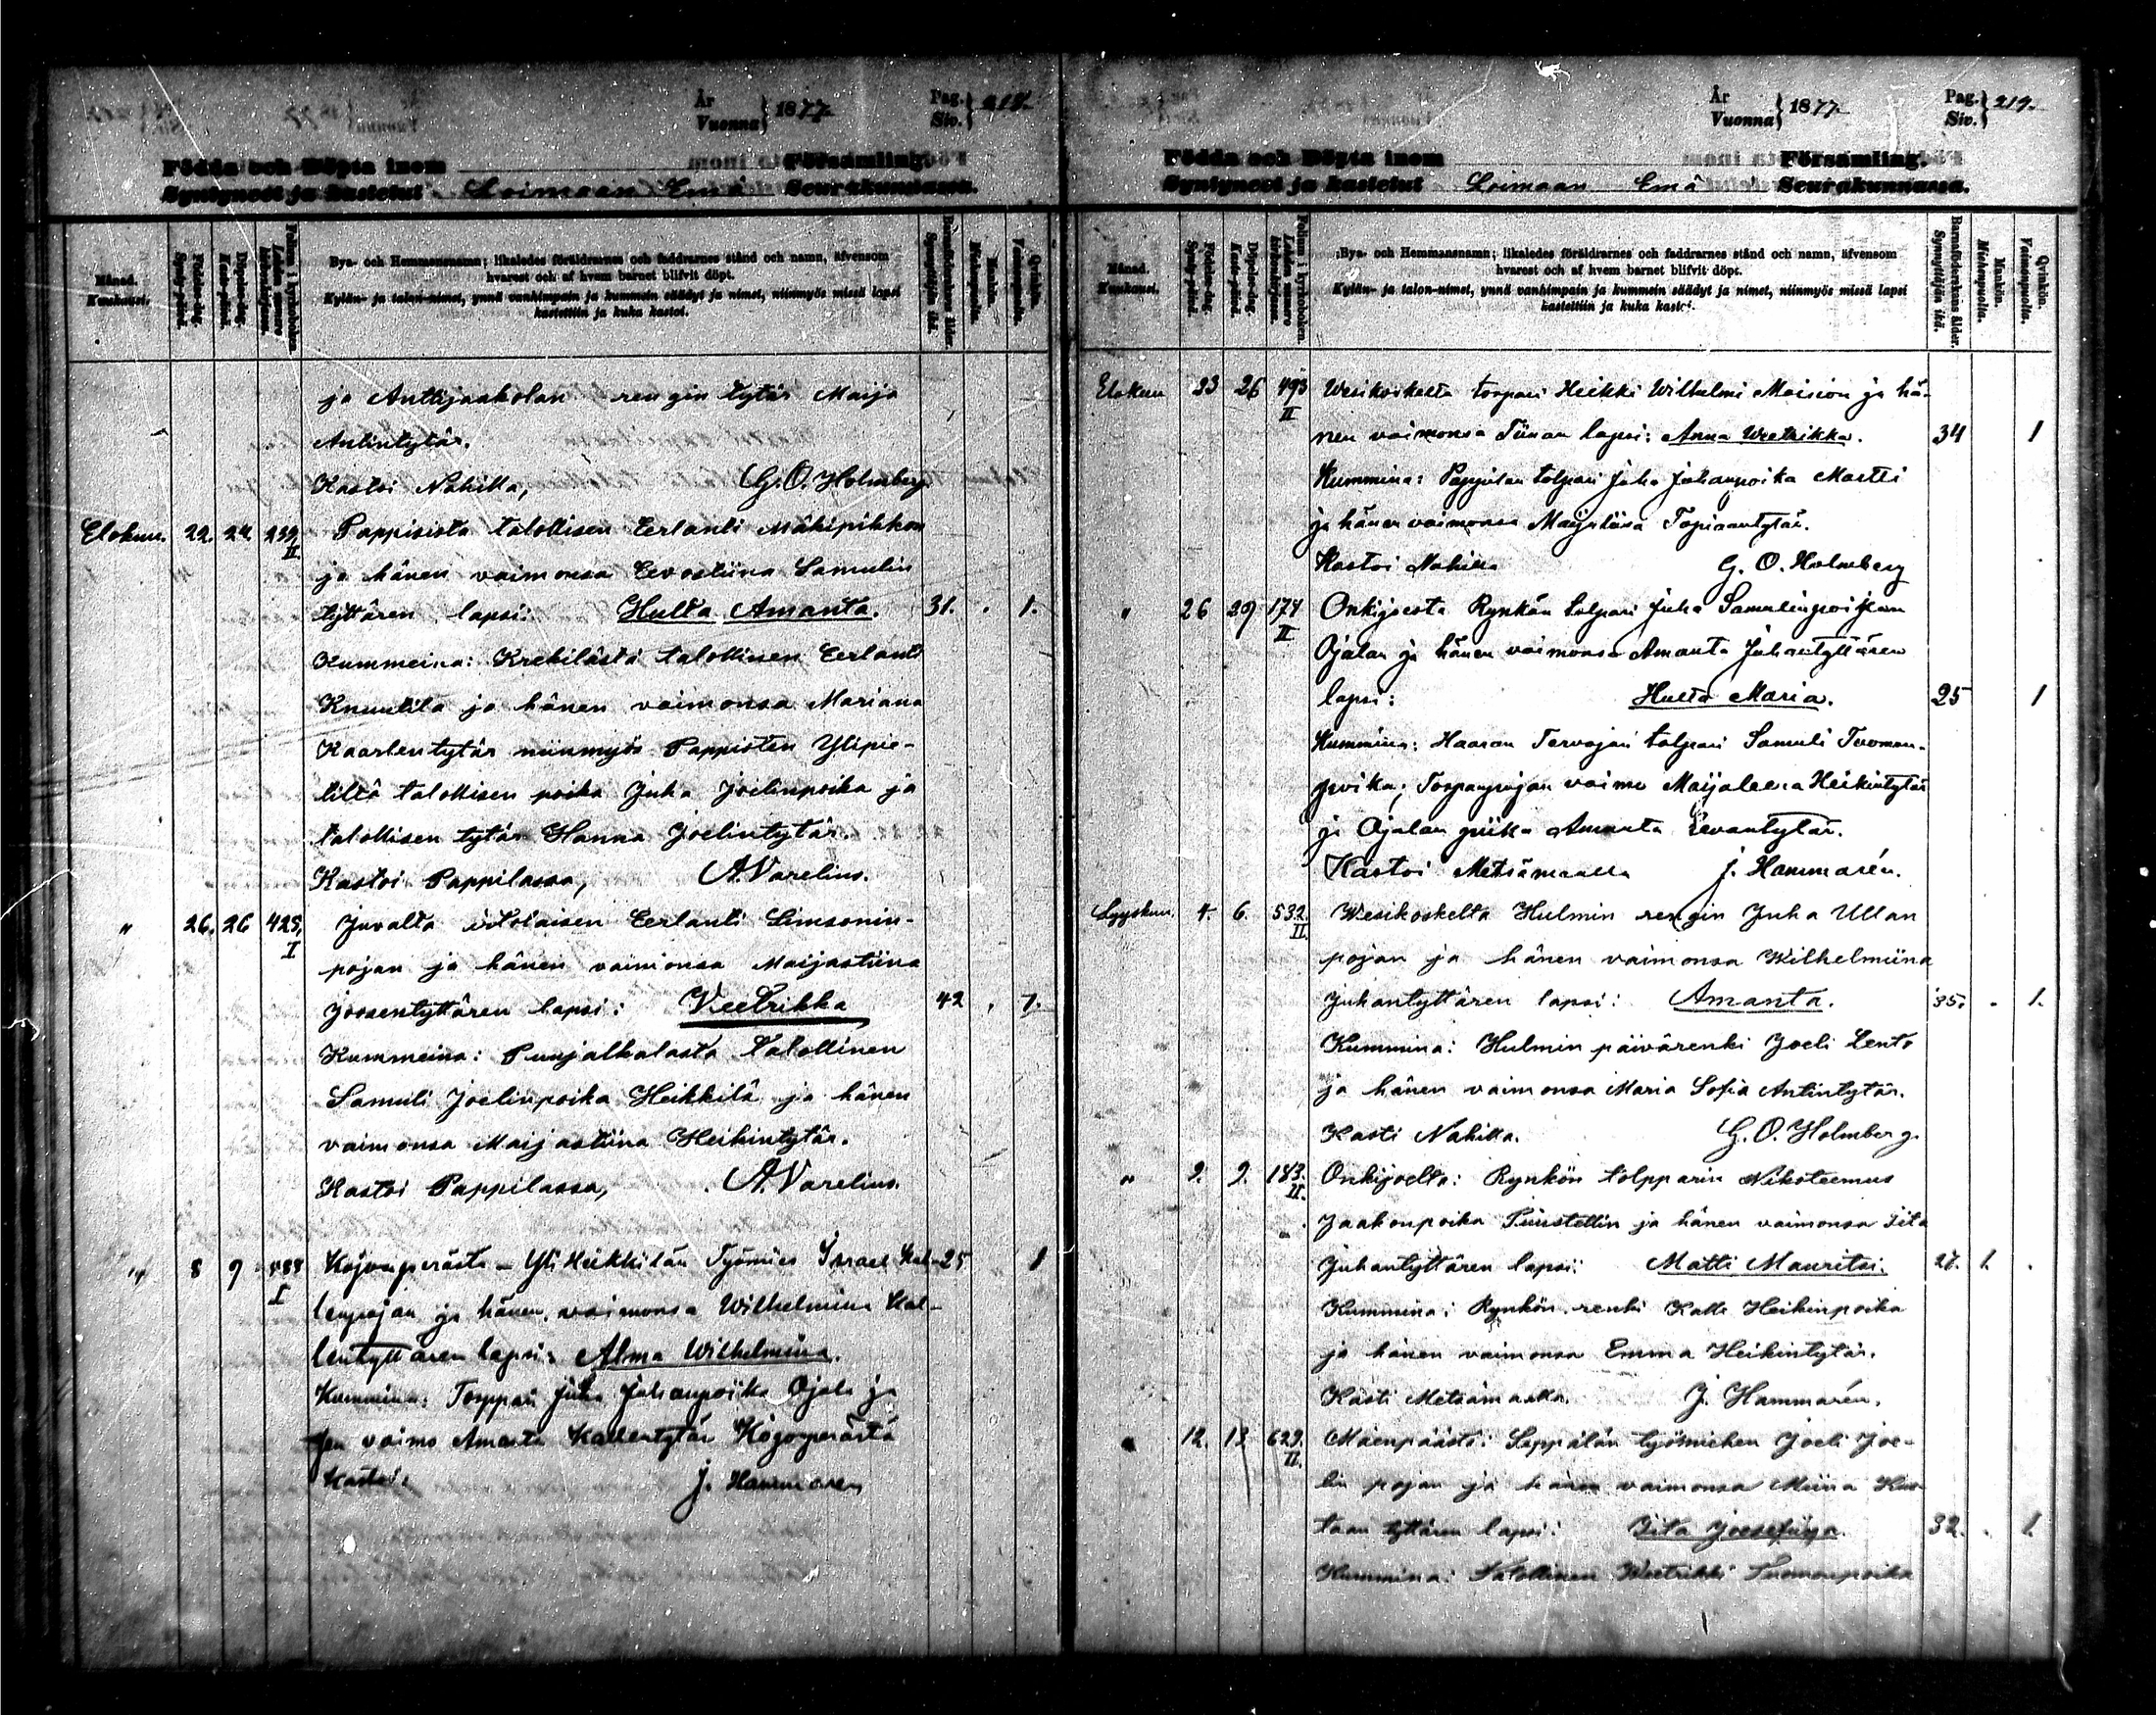 År
Vuonna } 1877.
Pag.
Siv. } 218.
Födda och Döpta inom Församling.
Syntyneet ja kastetut Loimaan Emä Seurakunnassa.
Månad.
Kuukausi.
Födelse-dag.
Synty-päivä.
Döpelse-dag.
Kaste-päivä.
Folium i kyrkoboken.
Lehden numero kirkonkirjassa.
Bya- och Hemmansnamn; likaledes föräldrarnes och faddrarnes stånd och namn, äfvensom
hvarest och af hvem barnet blifvit döpt.
Kylän- ja talon-nimet, ynnä vanhimpain ja kummein säädyt ja nimet, niinmyös missä lapsi
kastettiin ja kuka kastoi.
Barnaföderskans ålder.
Synnyttäjän ikä.
Mankön.
Miehenpuolia.
Qvinkön.
Vaimonpuolia.
ja Anttijaakolan rengin tytär Maija
Antintytär.
Kastoi Nahilla, G. O. Holmberg
Elokuu. 22. 24 239 II. Pappisista talollisen Eerlanti Mäkipihkon
ja hänen vaimonsa Eevastiina Samulin
tyttären lapsi: Hulta Amanta. 31. . 1.
Kummeina: Krekilästä talollinen Eerlanti
Knuutila ja hänen vaimonsa Mariana
Kaarlentytär niinmyös Pappisten Ylipie-
tilltä talollisen poika Juha Joelinpoika ja
talollisen tytär Hanna Joelintytär.
Kastoi Pappilassa, A. Varelius.
" 26. 26 425, I Juvalta itsolaisen Eerlanti Simsonin-
pojan ja hänen vaimonsa Maijastiina
Joosentyttären lapsi: Veetrikka 42 . 1.
Kummeina: Puujalkalasta talollinen
Samuli Joelinpoika Heikkilä ja hänen
vaimonsa Maijastiina Heikintytär.
Kastoi Pappilassa, A. Varelius.
" 8 9 I Kojonperästä - Yli Heikkilän Työmies Israel Kal- 25 1
lenpojan ja hänen vaimonsa Wilhelmina Kal-
lentyttären lapsi: Alma Wilhelmina.
Kummina: Torppari Juha Juhanpoika Ojala ja
sen vaimo Amanta Kallentytär Kojonperästä
Kastoi: J. Hammarén
År
Vuonna } 1877.
Pag.
Siv. } 219.
Födda och Döpta inom Församling.
Syntyneet ja kastetut Loimaan Emä Seurakunnassa.
Månad.
Kuukausi.
Födelse-dag.
Synty-päivä.
Döpelse-dag.
Kaste-päivä.
Folium i kyrkoboken.
Lehden numero kirkonkirjassa.
Bya- och Hemmansnamn; likaledes föräldrarnes och faddrarnes stånd och namn, äfvensom
hvarest och af hvem barnet blifvit döpt.
Kylän- ja talon-nimet, ynnä vanhimpain ja kummein säädyt ja nimet, niinmyös missä lapsi
kastettiin ja kuka kastoi.
Barnaföderskans ålder.
Synnyttäjän ikä.
Mankön.
Miehenpuolia.
Qvinkön.
Vaimonpuolia.
Elokuu 23 26 493 II Wesikoskelta torpari Heikki Wilhelmi Moision ja hä-
nen vaimonsa Tiinan lapsi: Anna Weetrikka. 34 1
Kummina: Pappilan tolpari Juha Juhanpoika Martti
ja hänen vaimonsa Maijastiina Topiaantytär.
Kastoi Nahilla G. O. Holmberg
" 26 29 174 II Onkijoesta Rynkön tolpari Juha Samulinpoijan
Ojalan ja hänen vaimonsa Amanta Juhantyttären
lapsi: Hulta Maria. 25 1
Kummina: Haaran Tarvojan tolpari Samuli Tuoman-
poika; Torpanpojan vaimo Maijaleena Heikintytär
ja Ojalan piika Amanta Eevantytär.
Kastoi Metsämaalla J. Hammarén.
Syyskuu. 4. 6. 532. II. Wesikoskelta Hulmin rengin Juha Ullan
pojan ja hänen vaimonsa Wilhelmiina
Juhantyttären lapsi: Amanta. 35. . 1.
Kummina: Hulmin päivärenki Joeli Lento
ja hänen vaimonsa Maria Sofia Antintytär.
Kasti Nahilla. G. O. Holmberg.
" 9. 9. 183. II. Onkijoelta: Rynkön tolpparin Nikoteemus
Jaakonpoika Puustellin ja hänen vaimonsa Iita
Juhantyttären lapsi: Matti Mauritsi. 27. 1. .
Kummina: Rynkön renki Kalle Heikinpoika
ja hänen vaimonsa Emma Heikintytär.
Kasti Metsämaalla. J. Hammarén.
" 12. 13 629. II. Mäenpäästä: Seppälän työmiehen Joeli Joe-
lin pojan ja hänen vaimonsa Miina Kus-
taan tyttären lapsi: Iita Joosefiina. 32. . 1.
Kummina: Talollinen Weetrikki Tuomanpoika